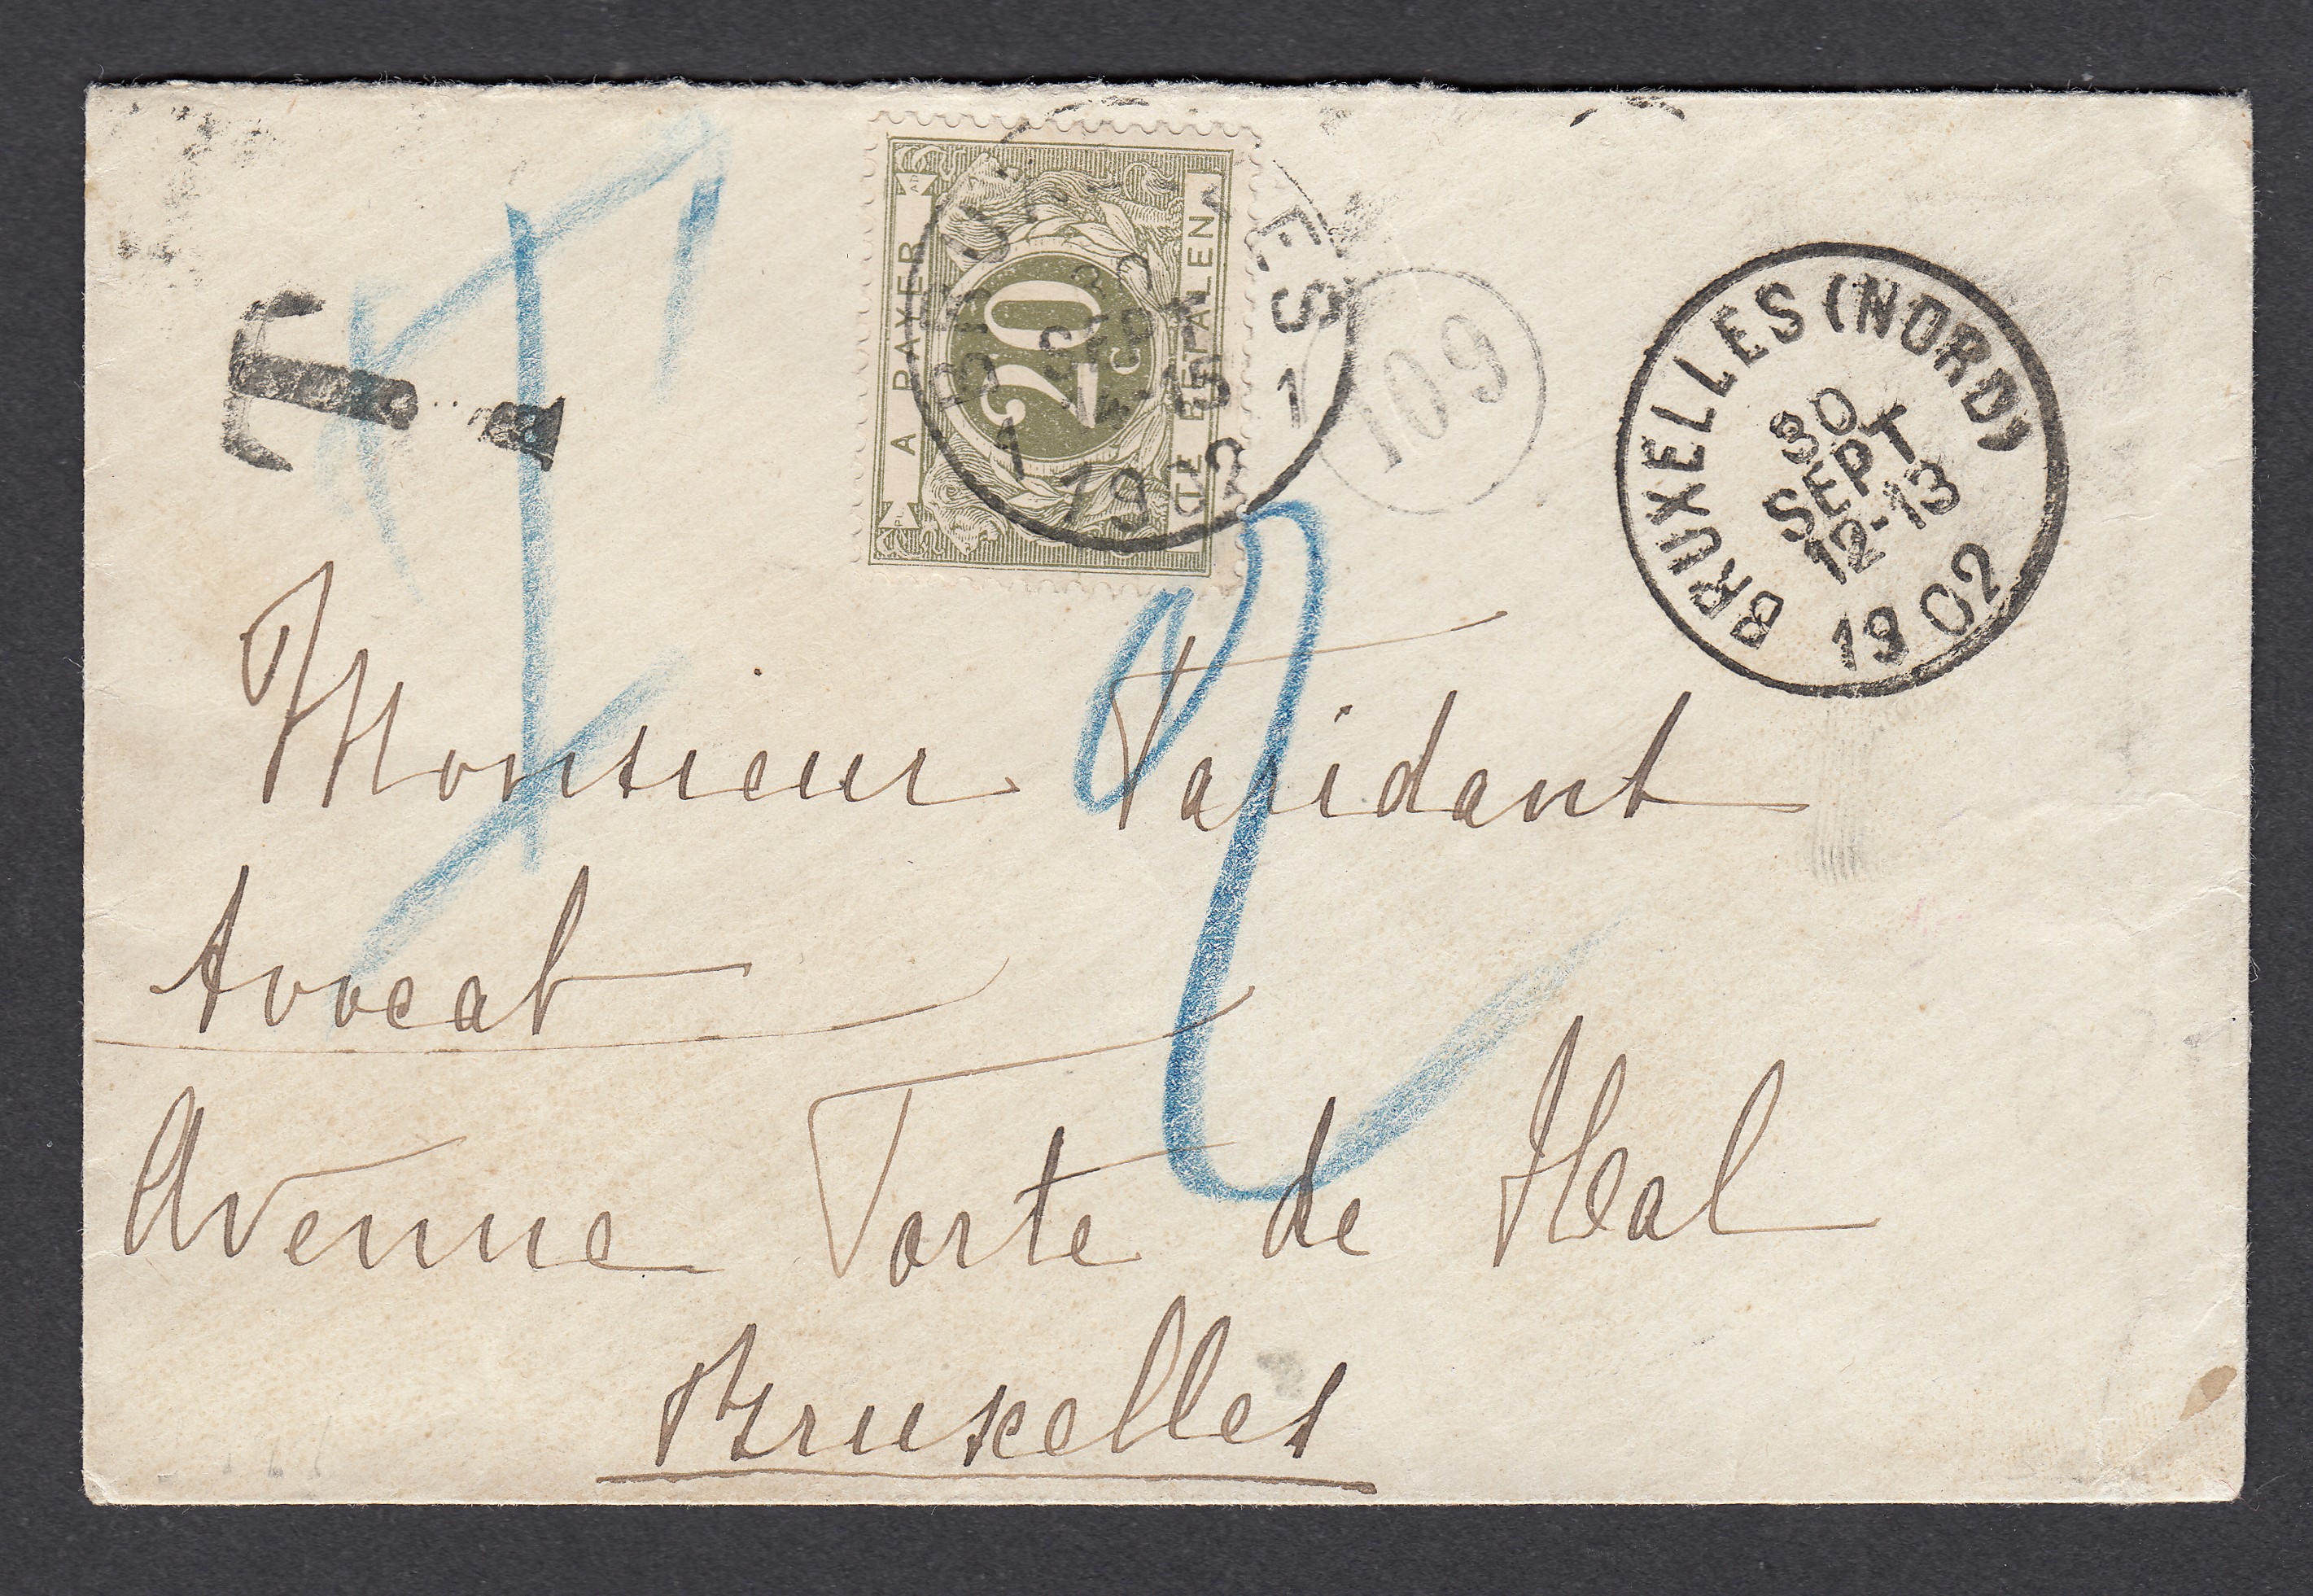 T
A PAYER
20
C
TE BETALEN
BRUXELLES 1
SEPT
1902
109
BRUXELLES (NORD)
30
SEPT
12-13
1902
2
Monsieur
Avocat
Avenue Porte de Hal
Bruxelles